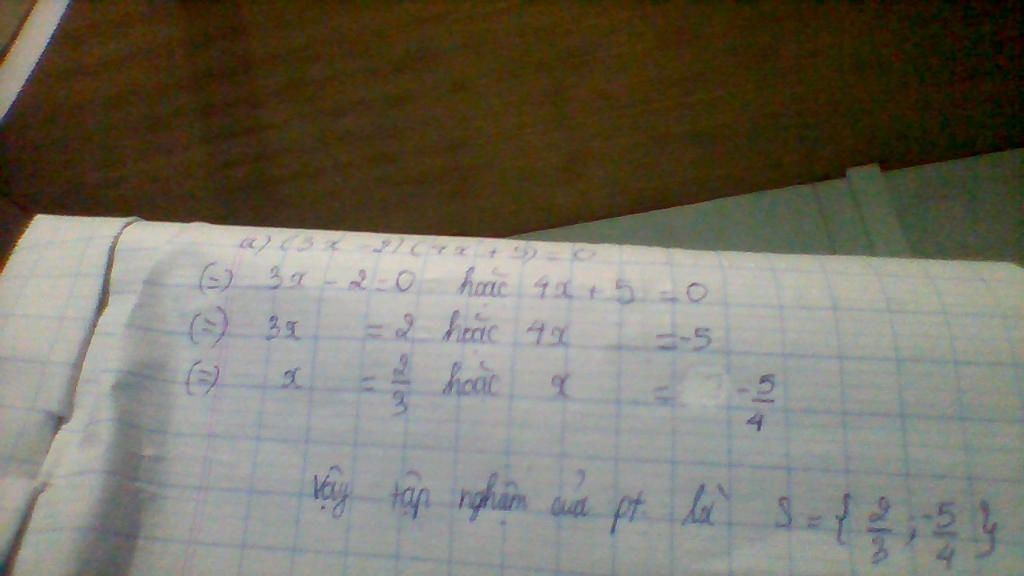 a) (3x - 2) (4x + 5) = 0
(=) 3x - 2 = 0 hoặc 4x + 5 = 0
(=) 3x = 2 hoặc 4x = -5
(=) x = 2/3 hoặc x = -5/4
Vậy tập nghiệm của pt là S = { 2/3 ; -5/4 }